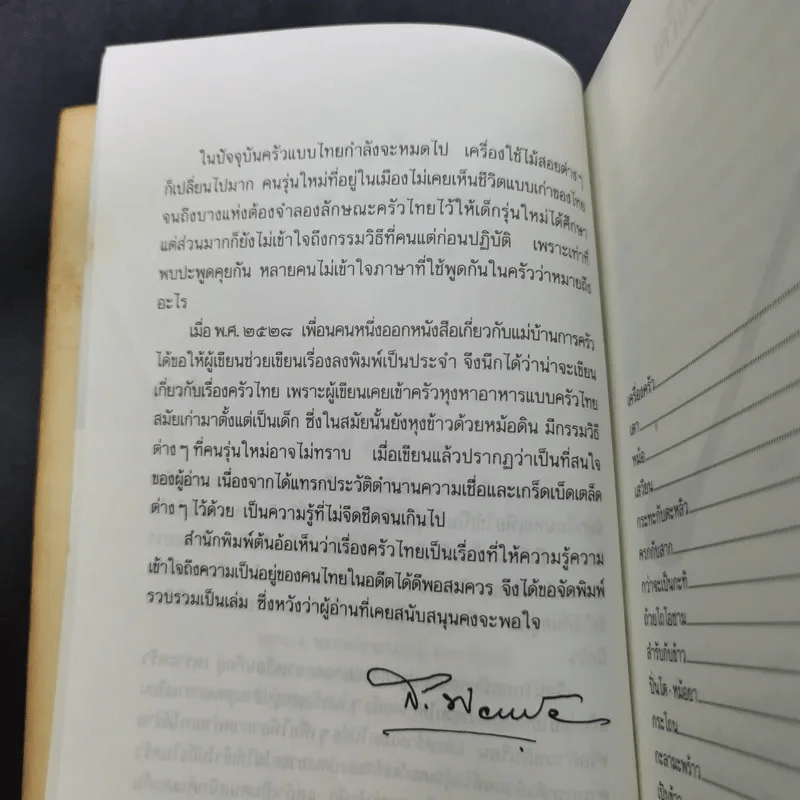 ในปัจจุบันครัวแบบไทยกำลังจะหมดไป เครื่องใช้ไม้สอยต่างๆ
ก็เปลี่ยนไปมาก คนรุ่นใหม่ที่อยู่ในเมืองไม่เคยเห็นชีวิตแบบเก่าของไทย
จนถึงบางแห่งต้องจำลองลักษณะครัวไทยไว้ให้เด็กรุ่นใหม่ได้ศึกษา
แต่ส่วนมากก็ยังไม่เข้าใจถึงกรรมวิธีที่คนแต่ก่อนปฏิบัติ เพราะเท่าที่
พบปะพูดคุยกัน หลายคนไม่เข้าใจภาษาที่ใช้พูดกันในครัวว่าหมายถึง
อะไร
เมื่อ พ.ศ. ๒๕๒๘ เพื่อนคนหนึ่งออกหนังสือเกี่ยวกับแม่บ้านการครัว
ได้ขอให้ผู้เขียนช่วยเขียนเรื่องลงพิมพ์เป็นประจำ จึงนึกได้ว่าน่าจะเขียน
เกี่ยวกับเรื่องครัวไทย เพราะผู้เขียนเคยเข้าครัวหุงหาอาหารแบบครัวไทย
สมัยเก่ามาตั้งแต่เป็นเด็ก ซึ่งในสมัยนั้นยังหุงข้าวด้วยหม้อดิน มีกรรมวิธี
ต่างๆ ที่คนรุ่นใหม่อาจไม่ทราบ เมื่อเขียนแล้วปรากฏว่าเป็นที่สนใจ
ของผู้อ่าน เนื่องจากได้แทรกประวัติตำนานความเชื่อและเกร็ดเบ็ดเตล็ด
ต่างๆ ไว้ด้วย เป็นความรู้ที่ไม่จืดชืดจนเกินไป
สำนักพิมพ์ต้นอ้อเห็นว่าเรื่องครัวไทยเป็นเรื่องที่ให้ความรู้ความ
เข้าใจถึงความเป็นอยู่ของคนไทยในอดีตได้ดีพอสมควร จึงได้ขอจัดพิมพ์
รวบรวมเป็นเล่ม ซึ่งหวังว่าผู้อ่านที่เคยสนับสนุนคงจะพอใจ
เครื่องครัว
เตา
หม้อ
เสวียน
กระทะกับตะหลิว
ครกกับสาก
กว่าจะเป็นกะทิ
ถ้วยโถโอชาม
สำรับกับข้าว
ปิ่นโต - หม้อยา
กระโถน
กะลามะพร้าว